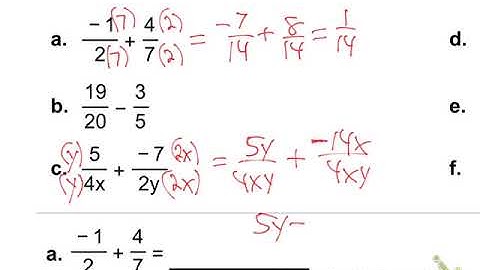 a. \frac{-1(7)}{2(7)} + \frac{4(2)}{7(2)} = \frac{-7}{14} + \frac{8}{14} = \frac{1}{14} d.
b. \frac{19}{20} - \frac{3}{5} e.
c. \frac{(y)5}{(y)4x} + \frac{-7(2x)}{2y(2x)} = \frac{5y}{4xy} + \frac{-14x}{4xy} f.
5y-
a. \frac{-1}{2} + \frac{4}{7} =